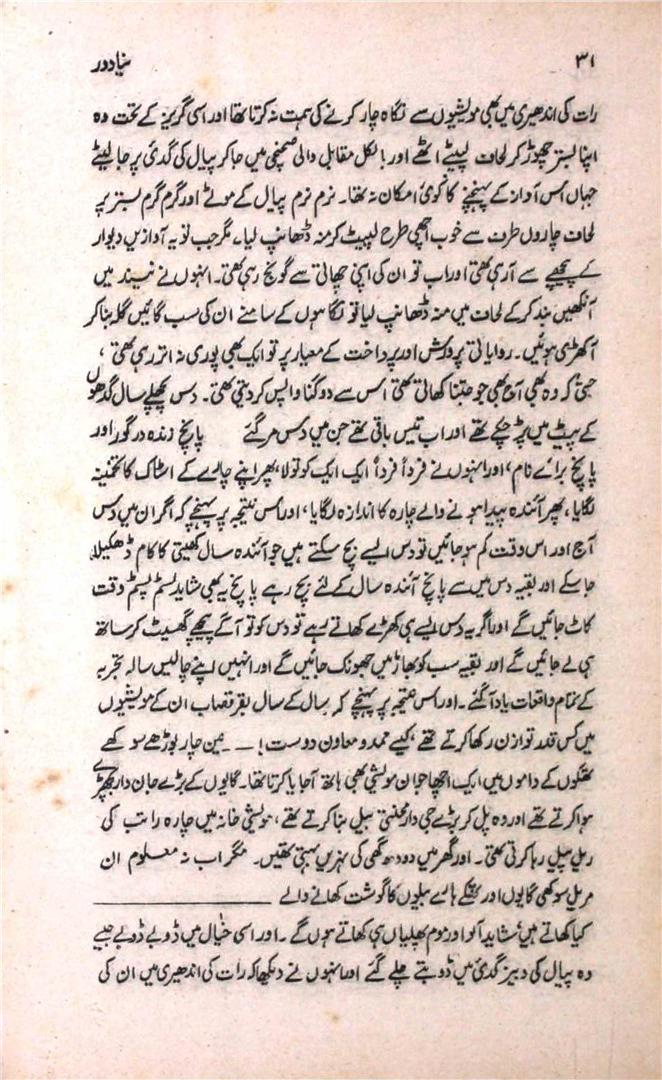 ۳۱ نیا دور
رات کی اندھیری میں بھی مویشیوں سے نگاہ چار کرنے کی ہمت نہ کرتا تھا اور اسی گریز کے تحت وہ
اپنا بستر چھوڑ کر لحاف لپیٹے اٹھے اور بالکل مقابل والی صحنچی میں جا کر پیال کی گدی پر جا لیٹے
جہاں اس آواز کے پہنچنے کا کوئی امکان نہ تھا۔ نرم نرم پیال کے موٹے اور گرم گرم بستر پر
لحاف چاروں طرف سے خوب اچھی طرح لپیٹ کر منہ ڈھانپ لیا، مگر جب تو یہ آوازیں دیوار
کے پیچھے سے آ رہی تھی اور اب تو ان کی اپنی چھاتی سے گونج رہی تھی۔ انہوں نے نیند میں
آنکھیں بند کر کے لحاف میں منہ ڈھانپ لیا تو نگاہوں کے سامنے ان کی سب گائیں گلہ بنا کر
آ کھڑی ہوئیں۔ روایاتی پرورش اور پرداخت کے معیار پر تو ایک بھی پوری نہ اتر رہی تھی،
حتیٰ کہ وہ بھی آج بھی جو جتنا کھاتی تھی اس سے دوگنا واپس کر دیتی تھی۔ دس پچھلے سال گدھوں
کے پیٹ میں پڑ چکے تھے اور اب تیس باقی تھے جن میں دس مر گئے پانچ زندہ درگور اور
پانچ برائے نام، اور انہوں نے فرداً فرداً ایک ایک کو تولا، پھر اپنے چارے کے اسٹاک کا تخمینہ
لگایا، پھر آئندہ پیدا ہونے والے چارہ کا اندازہ لگایا، اور اس نتیجہ پر پہنچے کہ اگر ان میں دس
آج اور اس وقت کم ہو جائیں تو دس ایسے بچ سکتے ہیں جو آئندہ سال کھیتی کا کام ڈھکیلا
جا سکے اور بقیہ دس میں سے پانچ آئندہ سال کے لئے بچ رہے پانچ یہ بھی شاید لسٹم پسٹم وقت
کاٹ جائیں گے اور اگر یہ دس ایسے ہی کھڑے کھاتے رہے تو دس کو تو آگے پیچھے گھسیٹ کر ساتھ
ہی لے جائیں گے اور بقیہ سب کو بھاڑ میں جھونک جائیں گے اور انہیں اپنے چالیس سالہ تجربہ
کے تمام واقعات یاد آ گئے۔ اور اس نتیجہ پر پہنچے کہ سال کے سال بقر قصاب ان کے مویشیوں
میں کس قدر توازن رکھا کرتے تھے، کیسے ممد و معاون دوست! ـــ تین چار بوڑھے سوکھے
کے داموں میں ایک اچھا جوان مویشی بھی ہاتھ آ جایا کرتا تھا۔ گایوں کے بڑے جان دار بچھڑے
ہوا کرتے تھے اور وہ پل کر بڑے جی دار محنتی بیل بنا کرتے تھے، مویشی خانہ میں چارہ راتب کی
ریل پیل رہا کرتی تھی۔ اور گھر میں دودھ گھی کی نہریں بہتی تھیں۔ مگر اب نہ معلوم ان
مریل سوکھی گایوں اور تھکے ہارے بیلوں کا گوشت کھانے والے ـــــــــــــ
کیا کھاتے ہیں شاید آلو اور موم پھلیاں ہی کھاتے ہوں گے۔ اور اسی خیال میں ڈوبے ڈوبے جیسے
وہ پیال کی دبیز گدی میں ڈوبتے چلے گئے اور انہوں نے دیکھا کہ رات کی اندھیری میں ان کی